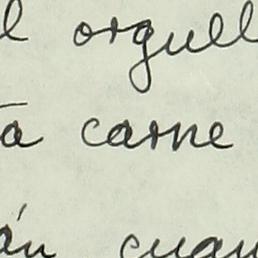 l orgull
ta carne
án cuan